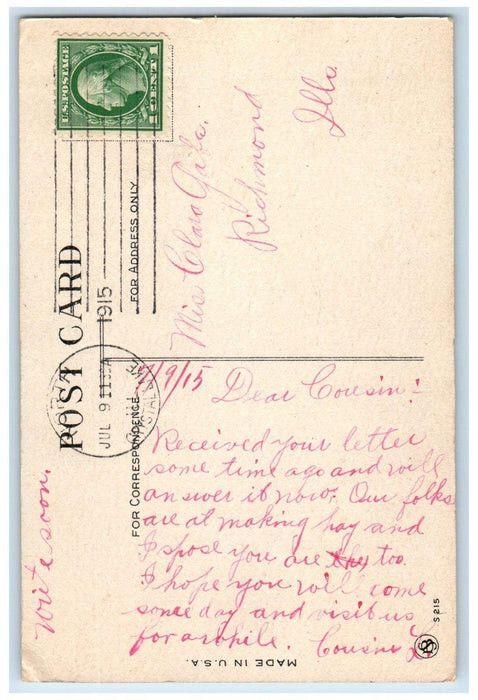 U.S. POSTAGE
1 CENT 1
POST CARD
FOR ADDRESS ONLY
FOR CORRESPONDENCE
JUL 9 1130A
1915
Miss Clara
Richmond
Ills.
7/9/15
Dear Cousin:
Received your letter
some time ago and will
answer it now. Our folks
are at making hay and
I spose you are too.
I hope you will come
some day and visit us
for awhile. Cousin
Write soon.
MADE IN U.S.A.
S 215